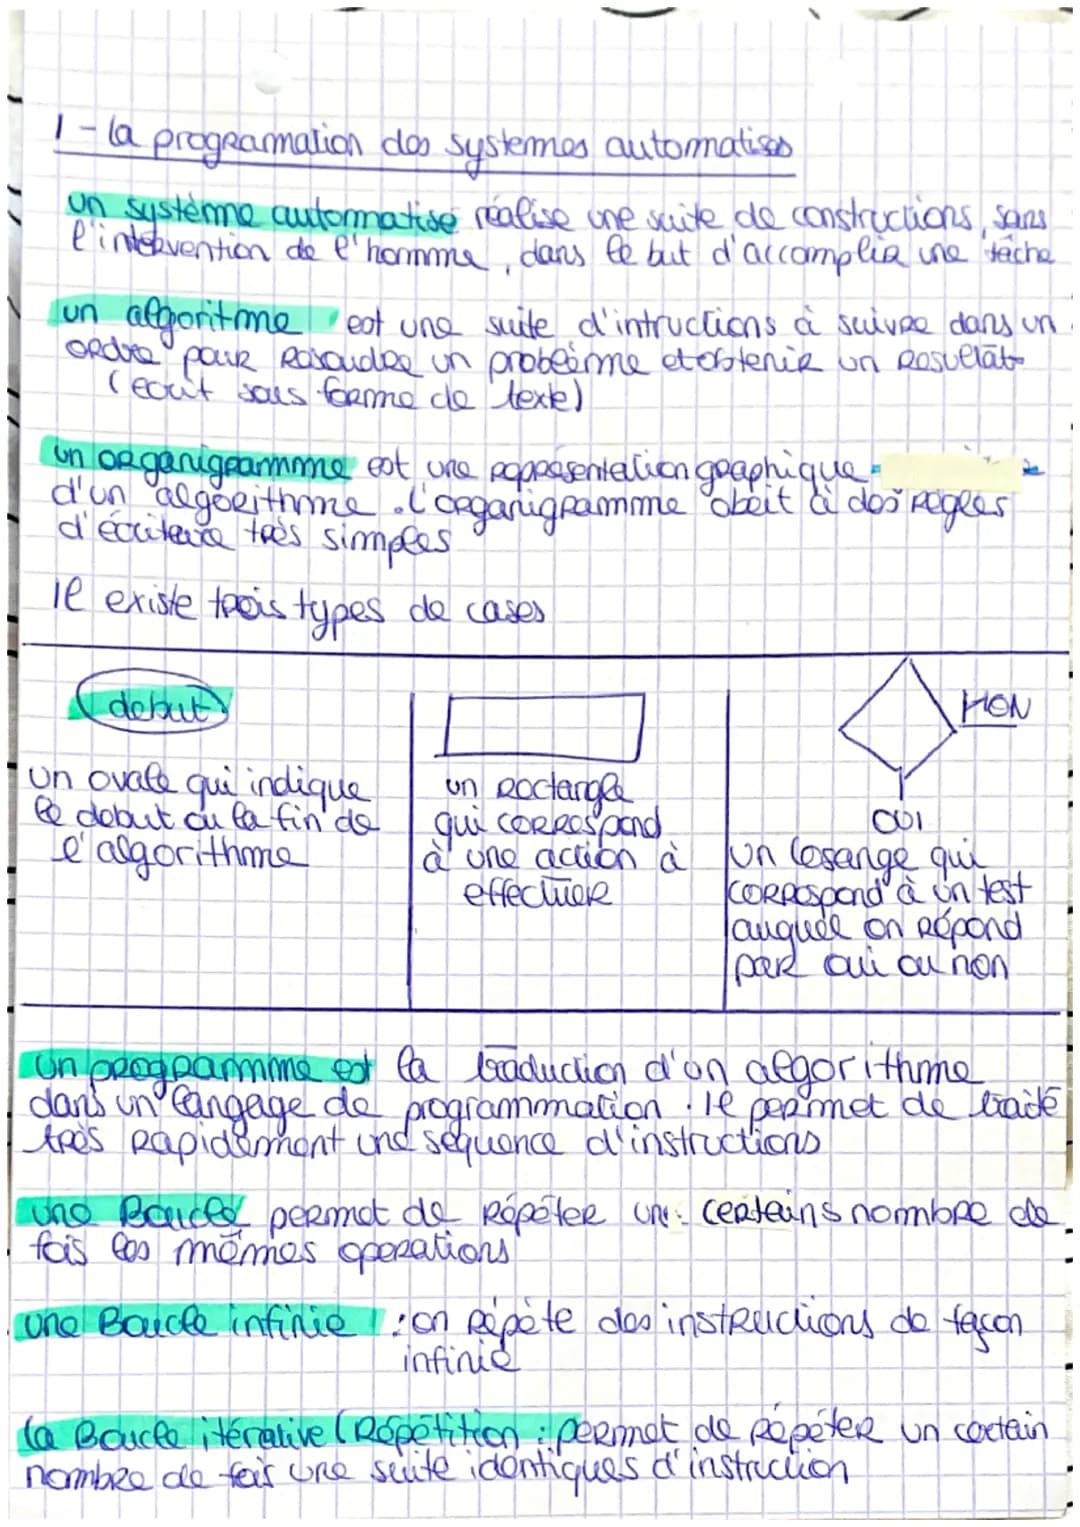 1 - la programation des systemes automatisés
un système automatisé réalise une suite de constructions, sans
l'intervention de l'homme, dans le but d'accomplir une tâche
un algoritme est une suite d'intructions à suivre dans un
ordre pour resoudre un problème et obtenir un resultat
(ecrit sous forme de texte)
un organigramme est une représentation graphique
d'un algorithme. L'organigramme obéit à des règles
d'écriture très simples
Il existe trois types de cases
debut
NON
OUI
un ovale qui indique
le debut ou la fin de
l'algorithme
un rectangle
qui correspond
à une action à
effectuer
un losange qui
correspond à un test
auquel on répond
par oui ou non
un programme est la traduction d'un algorithme
dans un langage de programmation. Il permet de traité
très rapidement une séquence d'instructions
une Boucle permet de répéter un certains nombre de
fois les mêmes operations
une Boucle infinie : on répète des instructions de façon
infinie
la Boucle itérative (Répétition : permet de répéter un certain
nombre de fois une suite identiques d'instruction